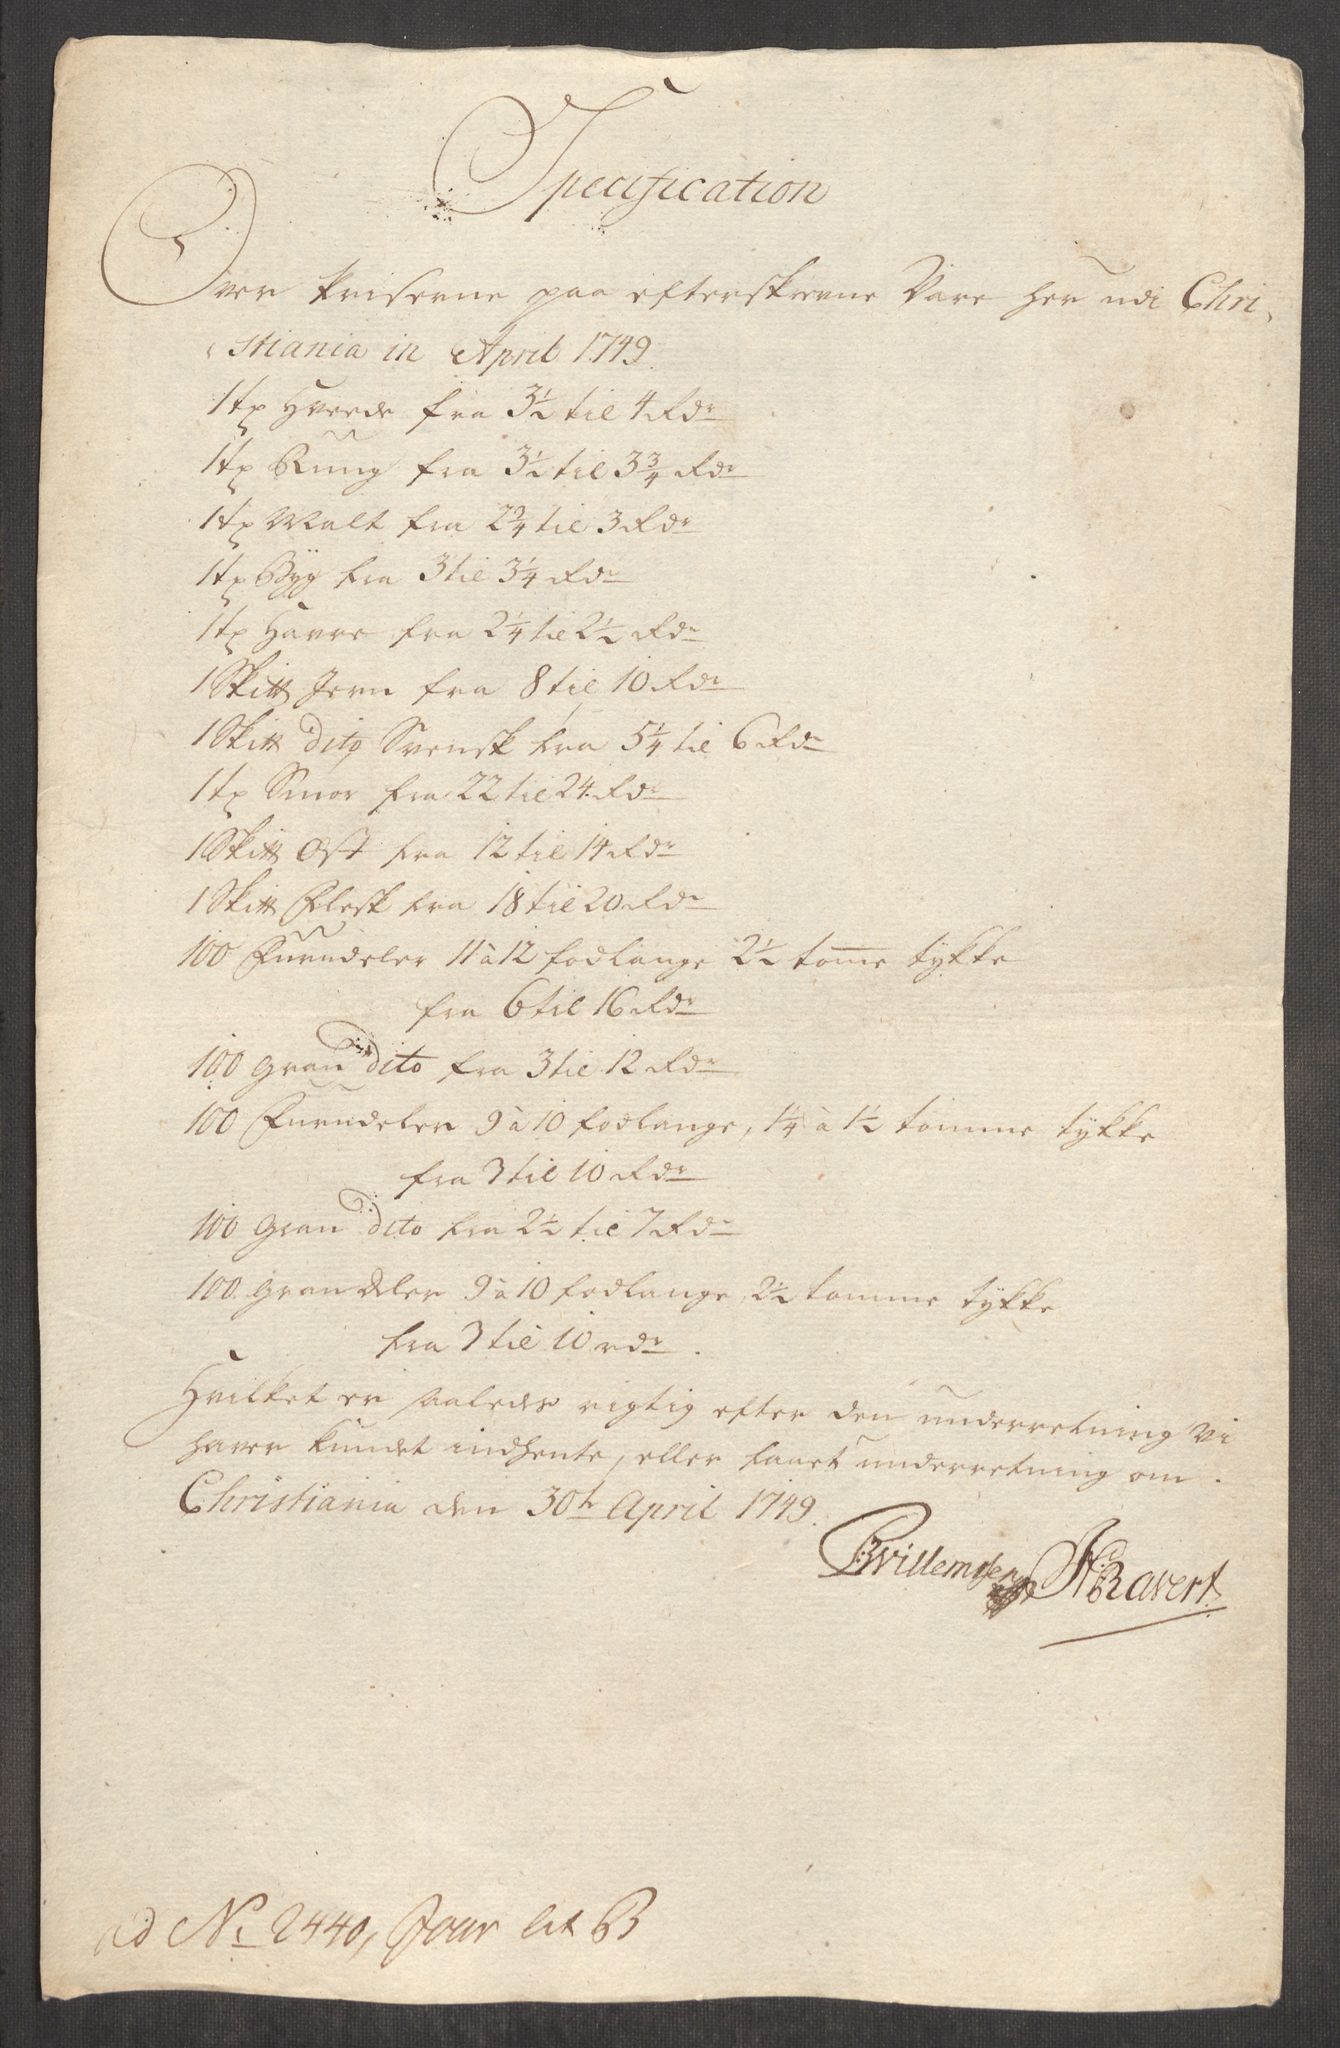 Specification
Over Priserne paa efterskrevne Vare her udi Chri-
stiania in April 1749.
1 tp Hvede fra 3½ til 4 Rdr
1 tp Rung fra 3½ til 3¾ Rdr
1 tp Malt fra 2¾ til 3 Rdr
1 tp Byg fra 3 til 3¼ Rdr
1 tp Havre fra 2¼ til 2½ Rdr
1 Skitt Jern fra 8 til 10 Rdr
1 Skitt dito Svensk fra 5¼ til 6 Rdr
1 tp Smor fra 22 til 24 Rdr
1 Skitt Ost fra 12 til 14 Rdr
1 Skitt Flesk fra 18 til 20 Rdr
100 Furudeler 11 à 12 fodlange 2½ tomme tykke
fra 6 til 16 Rdr
100 gran dito fra 3 til 12 Rdr
100 Furudeler 9 à 10 fodlange, 1¼ à 1½ tomme tykke
fra 3 til 10 Rdr
100 gran dito fra 2½ til 7 Rdr
100 grandeler 9 à 10 fodlange 2½ tomme tykke
fra 3 til 10 rdr.
Hvilket er saaledes rigtig efter den underretning vi
haver kundet indhente, eller faaet underretning om.
Christiania den 30te April 1749.
Willemsen HRavert
ad No 2440, Jour lit B